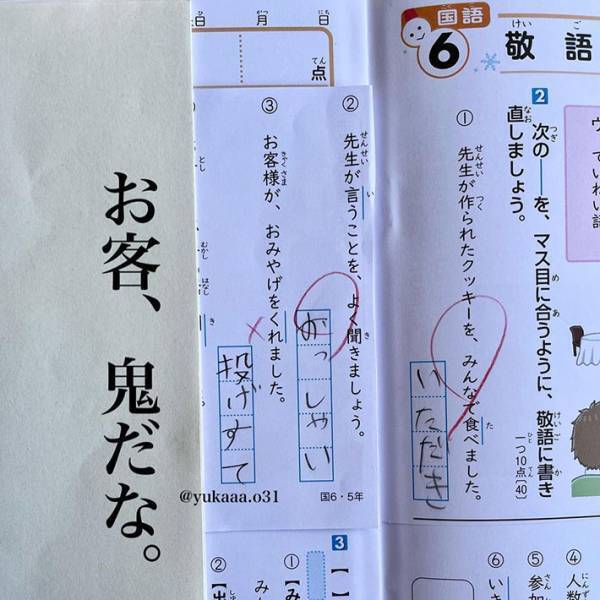 国語
6
敬語
けいご
2
次の──を、マス目に合うように、敬語に書き直しましょう。
一つ10点〔40〕
① 先生が作られたクッキーを、みんなで食べました。
いただき
② 先生が言うことを、よく聞きましょう。
おっしゃい
③ お客様が、おみやげをくれました。
投げすて
国6・5年
月
日
点
3
①
②
④ 人数
⑤ 参加
⑥ いき
お客、鬼だな。
@yukaaa.o31